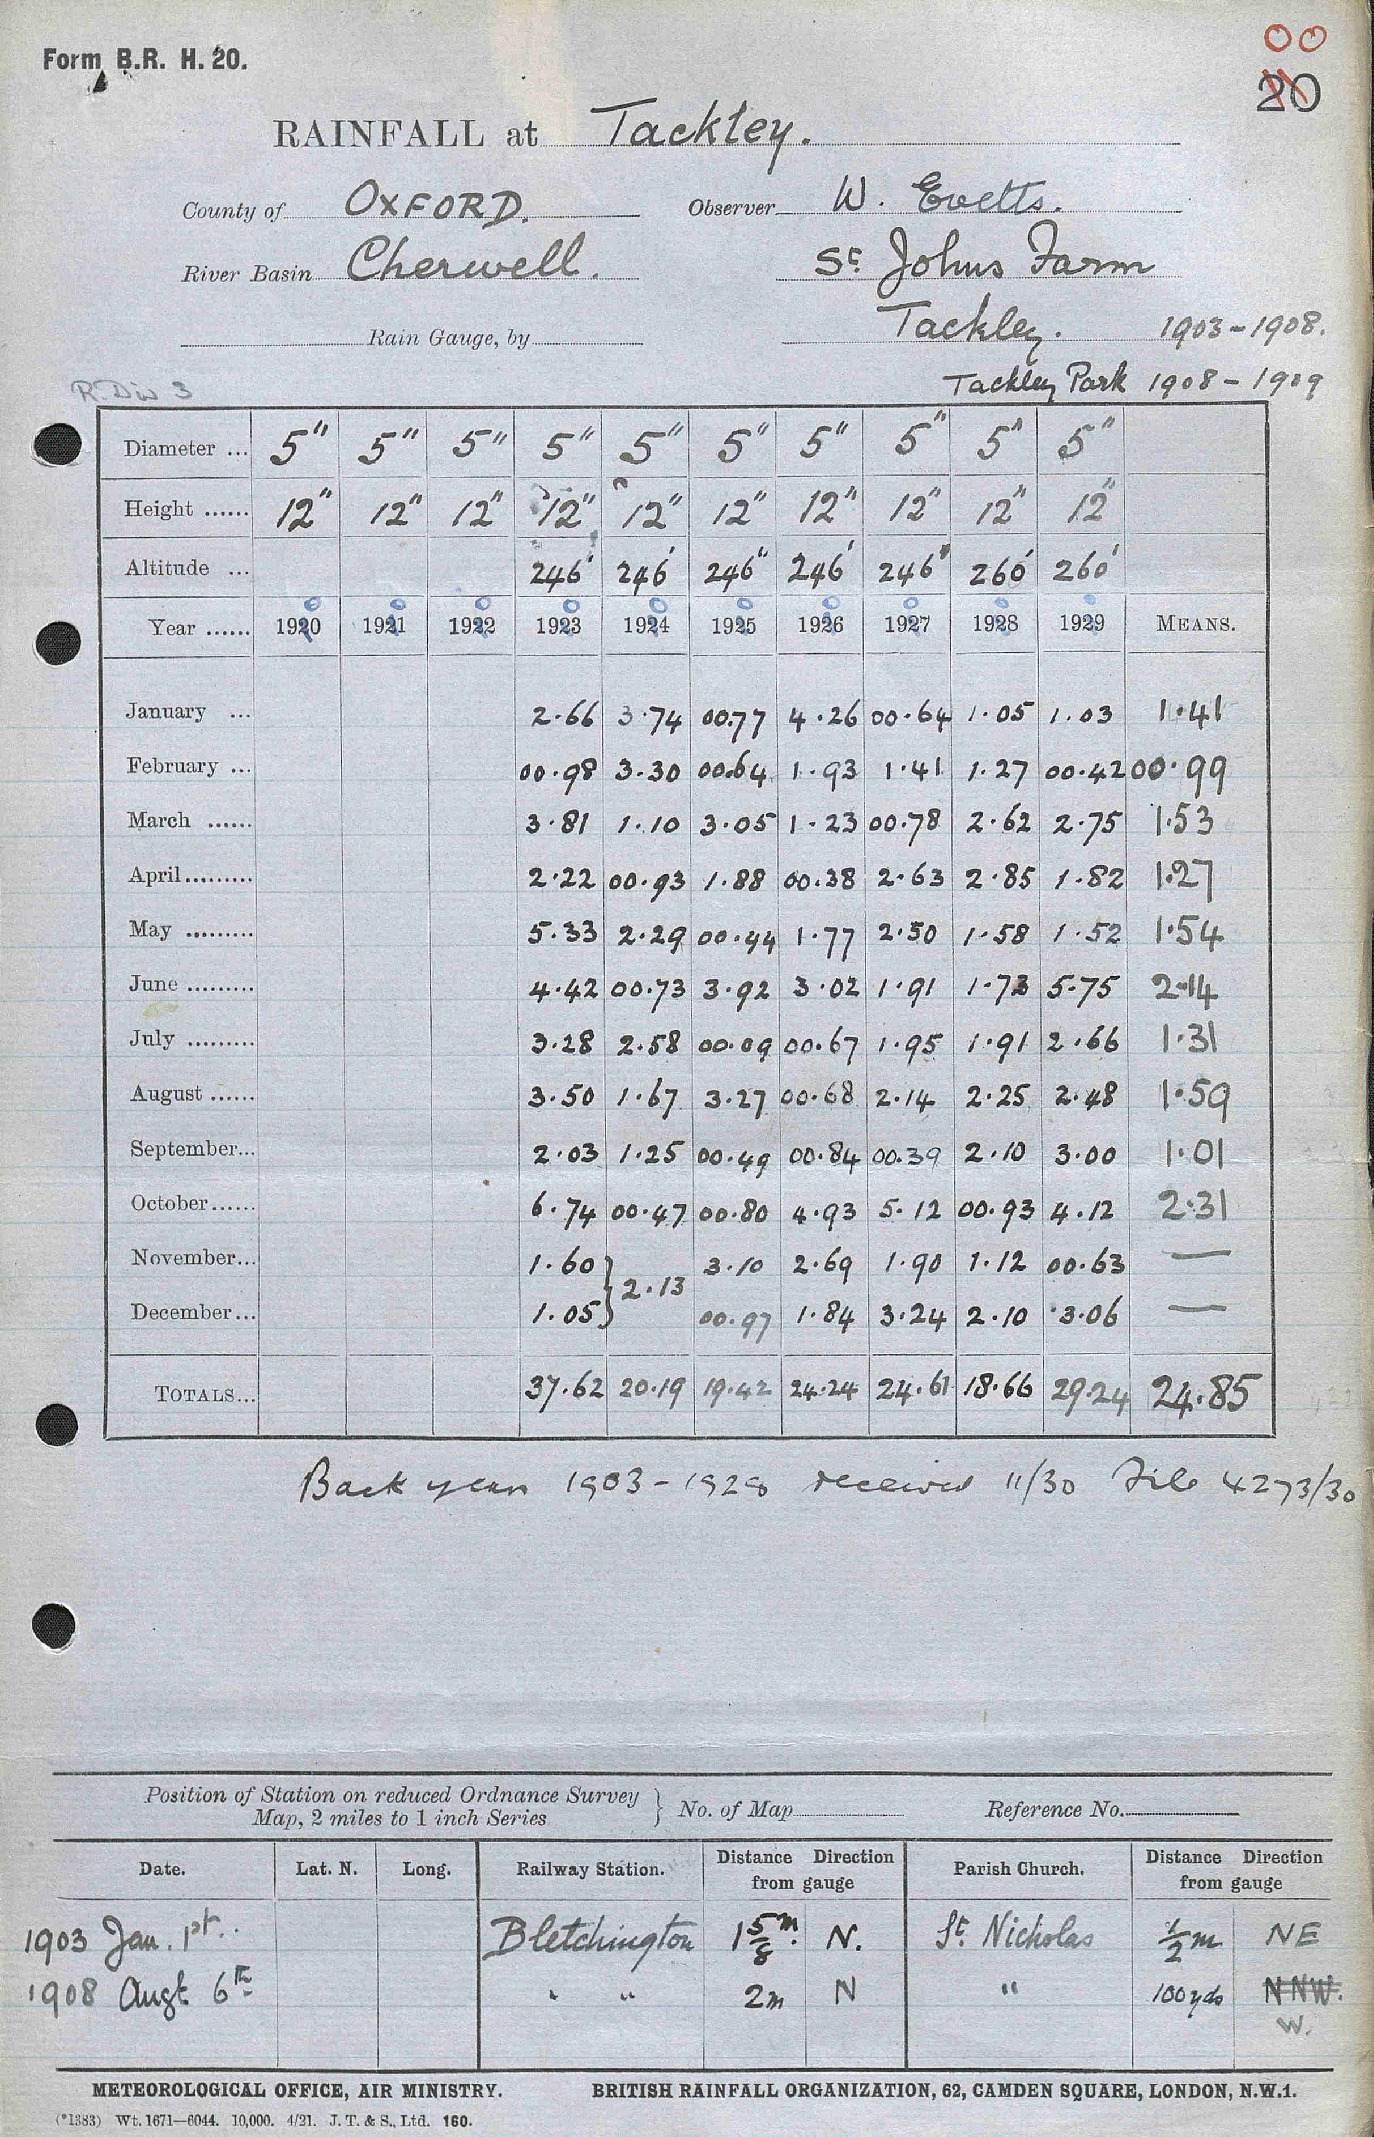 Form B.R. H. 20.
00
20
RAINFALL at Tackley.
County of OXFORD. Observer W. Evetts.
River Basin Cherwell. St. Johns Farm
Rain Gauge, by Tackley. 1903-1908.
R. Div 3 Tackley Park 1908-1909
Diameter ... 5" 5" 5" 5" 5" 5" 5" 5" 5" 5"
Height ...... 12" 12" 12" 12" 12" 12" 12" 12" 12" 12"
Altitude ... 246' 246' 246" 246' 246" 260' 260'
0 0 0 0 0 0 0 0 0 0
Year ...... 1920 1921 1922 1923 1924 1925 1926 1927 1928 1929 MEANS.
January ... 2.66 3.74 00.77 4.26 00.64 1.05 1.03 1.41
February ... 00.98 3.30 00.64 1.93 1.41 1.27 00.42 00.99
March ...... 3.81 1.10 3.05 1.23 00.78 2.62 2.75 1.53
April......... 2.22 00.93 1.88 00.38 2.63 2.85 1.82 1.27
May ......... 5.33 2.29 00.44 1.77 2.50 1.58 1.52 1.54
June ......... 4.42 00.73 3.92 3.02 1.91 1.73 5.75 2.14
July ......... 3.28 2.58 00.09 00.67 1.95 1.91 2.66 1.31
August ...... 3.50 1.67 3.27 00.68 2.14 2.25 2.48 1.59
September... 2.03 1.25 00.49 00.84 00.39 2.10 3.00 1.01
October...... 6.74 00.47 00.80 4.93 5.12 00.93 4.12 2.31
November... 1.60 3.10 2.69 1.90 1.12 00.63 —
} 2.13
December... 1.05 00.97 1.84 3.24 2.10 3.06 —
TOTALS... 37.62 20.19 19.42 24.24 24.61 18.66 29.24 24.85
Back years 1903-1928 received 11/30 File 4273/30
Position of Station on reduced Ordnance Survey
Map, 2 miles to 1 inch Series } No. of Map Reference No.
Date. Lat. N. Long. Railway Station. Distance Direction from gauge Parish Church. Distance Direction from gauge
1903 Jan. 1st. Bletchington 1 5/8 m. N. St. Nicholas 1/2 m NE
1908 Augt 6th " " 2m N " 100 yds NNW.
W.
METEOROLOGICAL OFFICE, AIR MINISTRY. BRITISH RAINFALL ORGANIZATION, 62, CAMDEN SQUARE, LONDON, N.W.1.
(*1383) Wt. 1671—6044. 10,000. 4/21. J. T. & S., Ltd. 160.